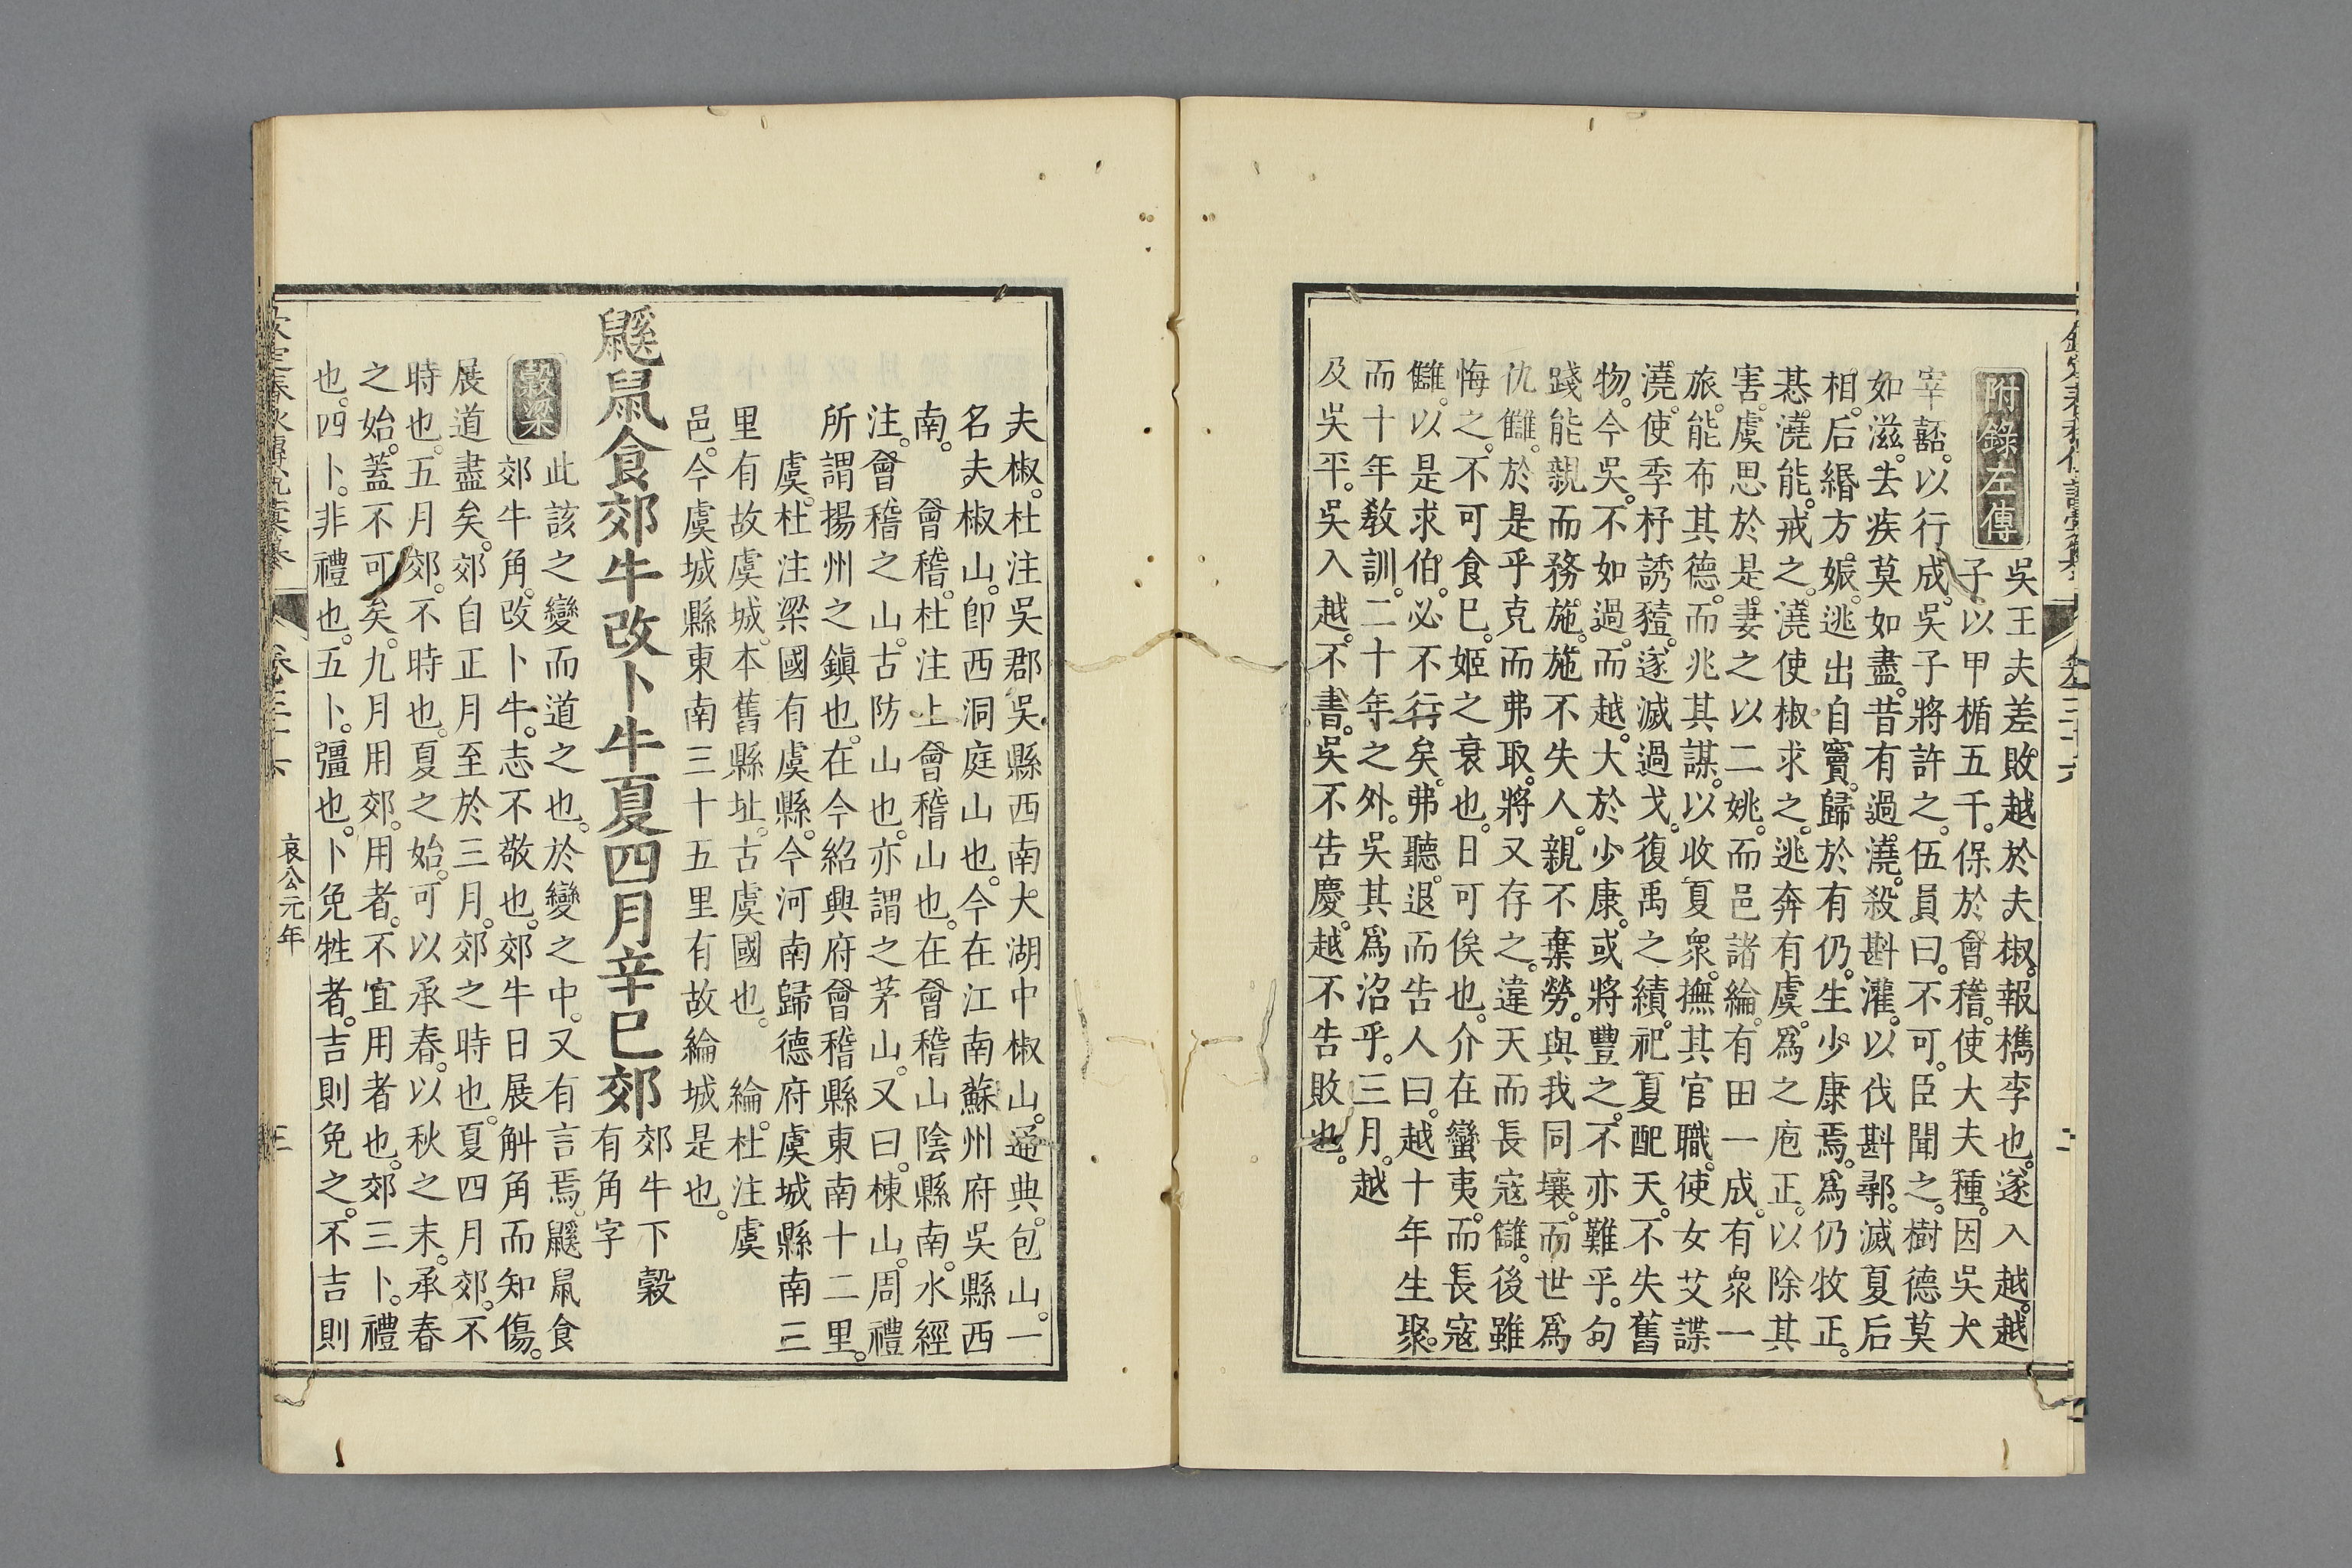 附錄左傳
吳王夫差敗越於夫椒。報檇李也。遂入越。越
子以甲楯五千。保於會稽。使大夫種。因吳大
宰嚭。以行成。吳子將許之。伍員曰。不可。臣聞之。樹德莫
如滋。去疾莫如盡。昔有過澆。殺斟灌。以伐斟鄩。滅夏后
相。后緡方娠。逃出自竇。歸於有仍。生少康焉。爲仍牧正。
惎澆能。戒之。澆使椒求之。逃奔有虞。爲之庖正。以除其
害。虞思於是。妻之以二姚。而邑諸綸。有田一成。有衆一
旅。能布其德。而兆其謀。以收夏衆。撫其官職。使女艾諜
澆。使季杼誘豷。遂滅過戈。復禹之績。祀夏配天。不失舊
物。今吳。不如過。而越。大於少康。或將豐之。不亦難乎。句
踐能親而務施。施不失人。親不棄勞。與我同壤。而世爲
仇讎。於是乎克而弗取。將又存之。違天而長寇讎。後雖
悔之。不可食已。姬之衰也。日可俟也。介在蠻夷。而長寇
讎。以是求伯。必不行矣。弗聽。退而告人曰。越十年生聚。
而十年敎訓。二十年之外。吳其爲沼乎。三月。越
及吳平。吳入越。不書。吳不告慶。越不告敗也。
夫椒。杜注吳郡吳縣西南大湖中椒山。通典。包山。一
名夫椒山。卽西洞庭山也。今在江南蘇州府吳縣西
南。 會稽。杜注上會稽山也。在會稽山陰縣南。水經
注。會稽之山。古防山也。亦謂之茅山。又曰。棟山。周禮
所謂揚州之鎭也。在今紹興府會稽縣東南十二里。
虞。杜注梁國有虞縣。今河南歸德府虞城縣南三
里有故虞城。本舊縣址。古虞國也。 綸。杜注虞
邑。今虞城縣東南三十五里有故綸城是也。
鼷鼠食郊牛改卜牛夏四月辛巳郊
郊牛下穀
有角字
穀梁
此該之變而道之也。於變之中。又有言焉。鼷鼠食
郊牛角。改卜牛。志不敬也。郊牛日展斛角而知傷。
展道盡矣。郊自正月至於三月。郊之時也。夏四月郊。不
時也。五月郊。不時也。夏之始。可以承春。以秋之末。承春
之始。蓋不可矣。九月用郊。用者。不宜用者也。郊三卜。禮
也。四卜。非禮也。五卜。彊也。卜免牲者。吉則免之。不吉則
哀公元年